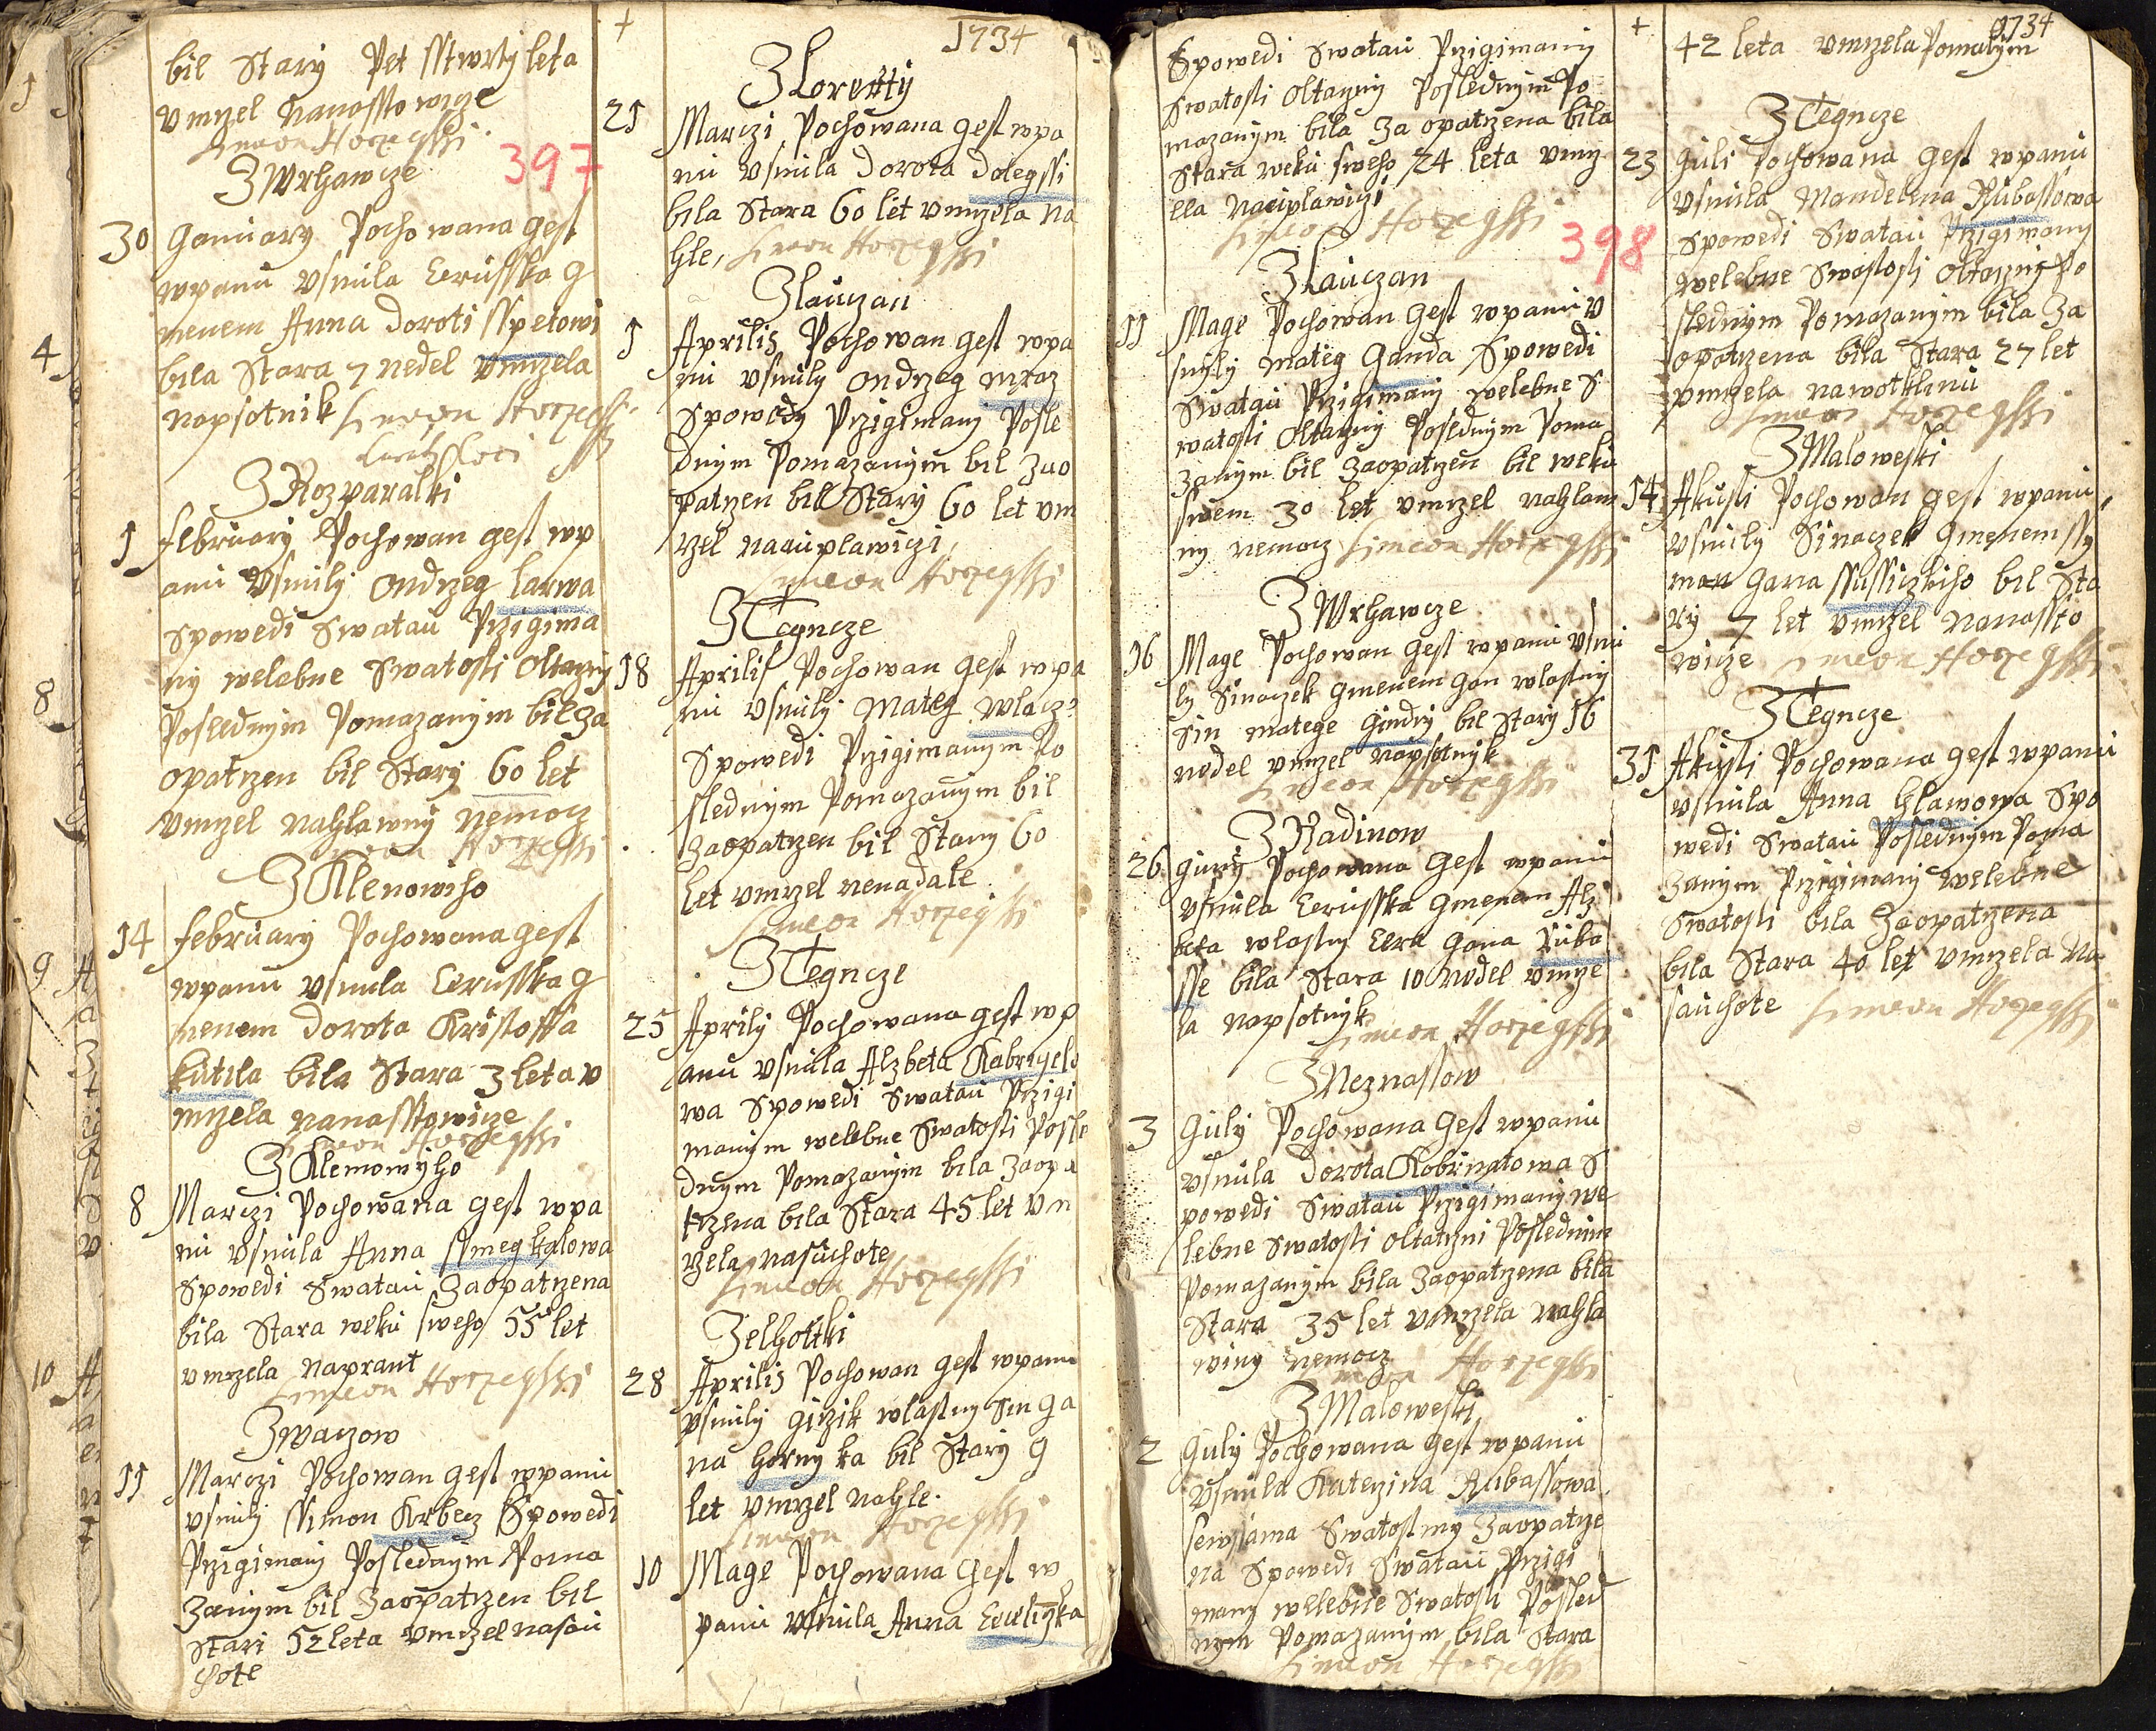 bil Starÿ Pet sstwrtÿ leta
vmrzel Nanosstowicze
Simeon Horzegssi
397
Z Wrhawcze
30 Januarÿ Pochowana gest
wpanu Vsnula Czerusska g
menem Anna Doroti Sspetowi
bila Stara 7 nedel vmrzela
napsotnik Simeon Horzegssi
Z Rozparalki
1 februarÿ Pochowan gest wp
anu Vsnulÿ Ondrzeg Larwa
Spowedi Swatau Przigima
nÿ welebne Swatosti Oltarznÿ
Poslednÿm Pomazanÿm bil Za
opatrzen bil Starÿ 60 let
vmrzel nahlawnÿ nemocz
Simeon Horzegssi
Z Klenowiho
14 februarÿ Pochowana gest
wpanu vsnula Czerusska g
menem Dorota Kristoffa
kutila bila Stara 3 leta v
mrzela nanasstowicze
Simeon Horzegssi
Z Klemowÿho
8 Marczi Pochowana gest wpa
nu vsnula Anna Ssmegkalowa
Spowedi Swatau Zaopatrzena
bila Stara weku sweho 55 let
vmrzela naprant
Simeon Horzegssi
Z waczow
11 Marczi Pochowan gest wpanu
vsnulÿ Ssimon Krbecz Spowedi
Przigimanÿ Poslednÿm Poma
zanÿm bil Zaopatrzen bil
Stari 52 leta vmrzel nasau
chote
+ 1734
Z Loretty
21 Marczi Pochowana gest wpa
nu vsnula Dorota Dolegssi
bila Stara 60 let vmrzela na
hle, Simeon Horzegssi
Z lauczan
1 Aprilis Pochowan gest wpa
nu vsnulÿ Ondrzeg mraz
Spowedÿ Przigimanÿ Posle
dnÿm Pomazanÿm bil Zao
patrzen bil Starÿ 60 let vm
rzel nasuplawiczi
Simeon Horzegssi
Z Tegncze
18 Aprilis Pochowan gest wpa
nu vsnulÿ Mateg wlacz
Spowedi Przigimanÿm Po
slednÿm Pomazanÿm bil
Zaopatrzen bil Starÿ 60
let vmrzel nenadale
Simeon Horzegssi
Z Tegncze
25 Aprilÿ Pochowana gest wp
anu vsnula Alzbeta Kabrigelo
wa Spowedi Swatau Przigi
manÿm welebne Swatosti Posle
dnÿm Pomazanÿm bila Zaopa
trzena bila Stara 45 let vm
rzela nasuchote
Simeon Horzegssi
Z elhottki
28 Aprilis Pochowan gest wpanu
vsnulÿ girzik wlastnÿ sin ga
na hornÿ ka bil Starÿ 9
let vmrzel nahle.
Simeon Horzegssi
10 Mage Pochowana gest w
panu vsnula Anna
Spowedi Swatau Przigimanÿ
Swatosti Oltarznÿ Poslednÿm Po
mazanÿm bila Za opatrzena bila
Stara weku sweho 24 leta vmrz
ella nasuplawiczi
Simeon Horzegssi
398
Z Lauczan
11 Mage Pochowan gest wpanu v
snulÿ Mateg Ganda Spowedi
Swatau Przigimanÿ welebne S
watosti Oltarznÿ Poslednÿm Poma
zanÿm bil Zaopatrzen bil weku
swem 30 let vmrzel nahlaw
nÿ nemocz Simeon Horzegssi
Z Wrhawcze
16 Mage Pochowan gest wpanu vsnu
lÿ Sinaczek gmenem gan wlastnÿ
sin matege gindrÿ bil Starÿ 16
nedel vmrzel napsotnÿk
Simeon Horzegssi
Z Radinow
26 junÿ Pochowana gest wpanu
vsnula Czerusska gmenem Alz
beta wlastnÿ Czera gana Ruba
sse bila Stara 10 nedel vmrze
la napsotnÿk
Simeon Horzegssi
Z Neznassow
3 Gulÿ Pochowana gest wpanu
vsnula Dorota Kobrnatowa S
powedi Swatau Przigimanÿ we
lebne Swatosti oltarzni Poslednim
Pomazanÿm bila Zaopatrzena bila
Stara 35 let vmrzela nahla
winÿ nemocz
Simeon Horzegssi
Z Maloweski
2 Gulÿ Pochowana gest wpanu
vsnula Katerzina Rubassowa
sewssama Swatostmÿ Zaopatrze
na Spowedi Swatau Przigi
manÿ welebne Swatosti Posled
nÿm Pomazanÿm bila Stara
Simeon Horzegssi
+ 1734
42 leta vmrzela Pomalÿm
Z Tegncze
23 Guli Pochowana gest wpanu
vsnula Mandelena Rubassowa
Spowedi Swatau Przigimanÿ
welebne Swatosti Oltarznÿ Po
slednÿm Pomazanÿm bila Za
opatrzena bila Stara 27 let
vmrzela nawotklinu
Simeon Horzegssi
Z Maloweski
14 Akusti Pochowan gest wpanu
vsnulÿ Sinaczek Gmenem Ssÿ
man gana Ssussiczkiho bil Sta
rÿ 7 let vmrzel Nanassto
wicze Simeon Horzegssi
Z Tegncze
31 Akusti Pochowana gest wpanu
vsnula Anna Hlawowa Spo
wedi Swatau Poslednÿm Poma
zanÿm Przigimanÿ Welebne
Swatosti bila Zaopatrzena
bila Stara 40 let vmrzela Na
sauchote Simeon Horzegssi